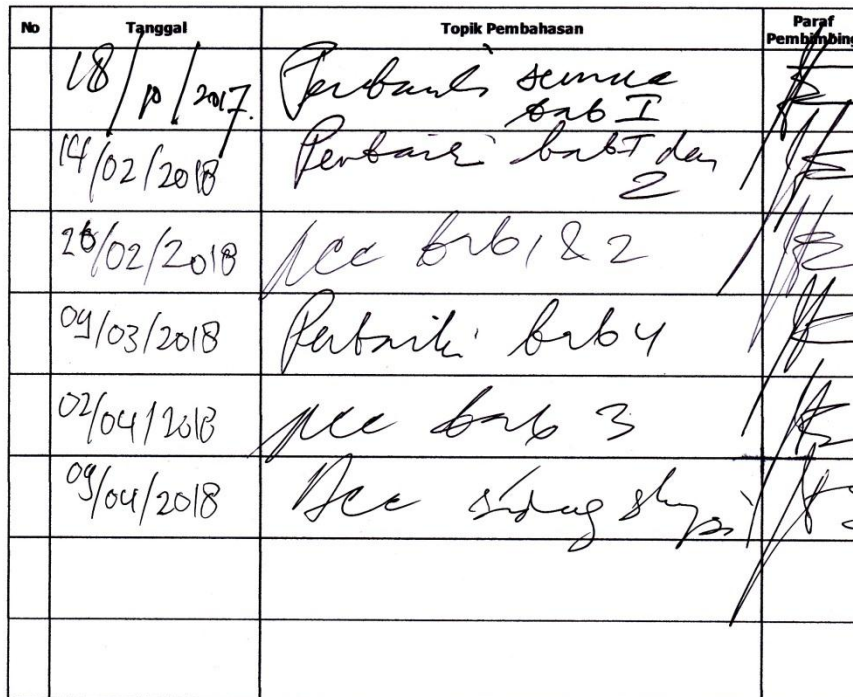 No Tanggal Topik Pembahasan Paraf Pembimbing
18/10/2017. Perbaiki semua
bab I
14/02/2018 Perbaiki bab I dan
2
26/02/2018 Acc bab 1 & 2
09/03/2018 Perbaiki bab 4
02/04/2018 Acc bab 3
09/04/2018 Acc sidang skripsi